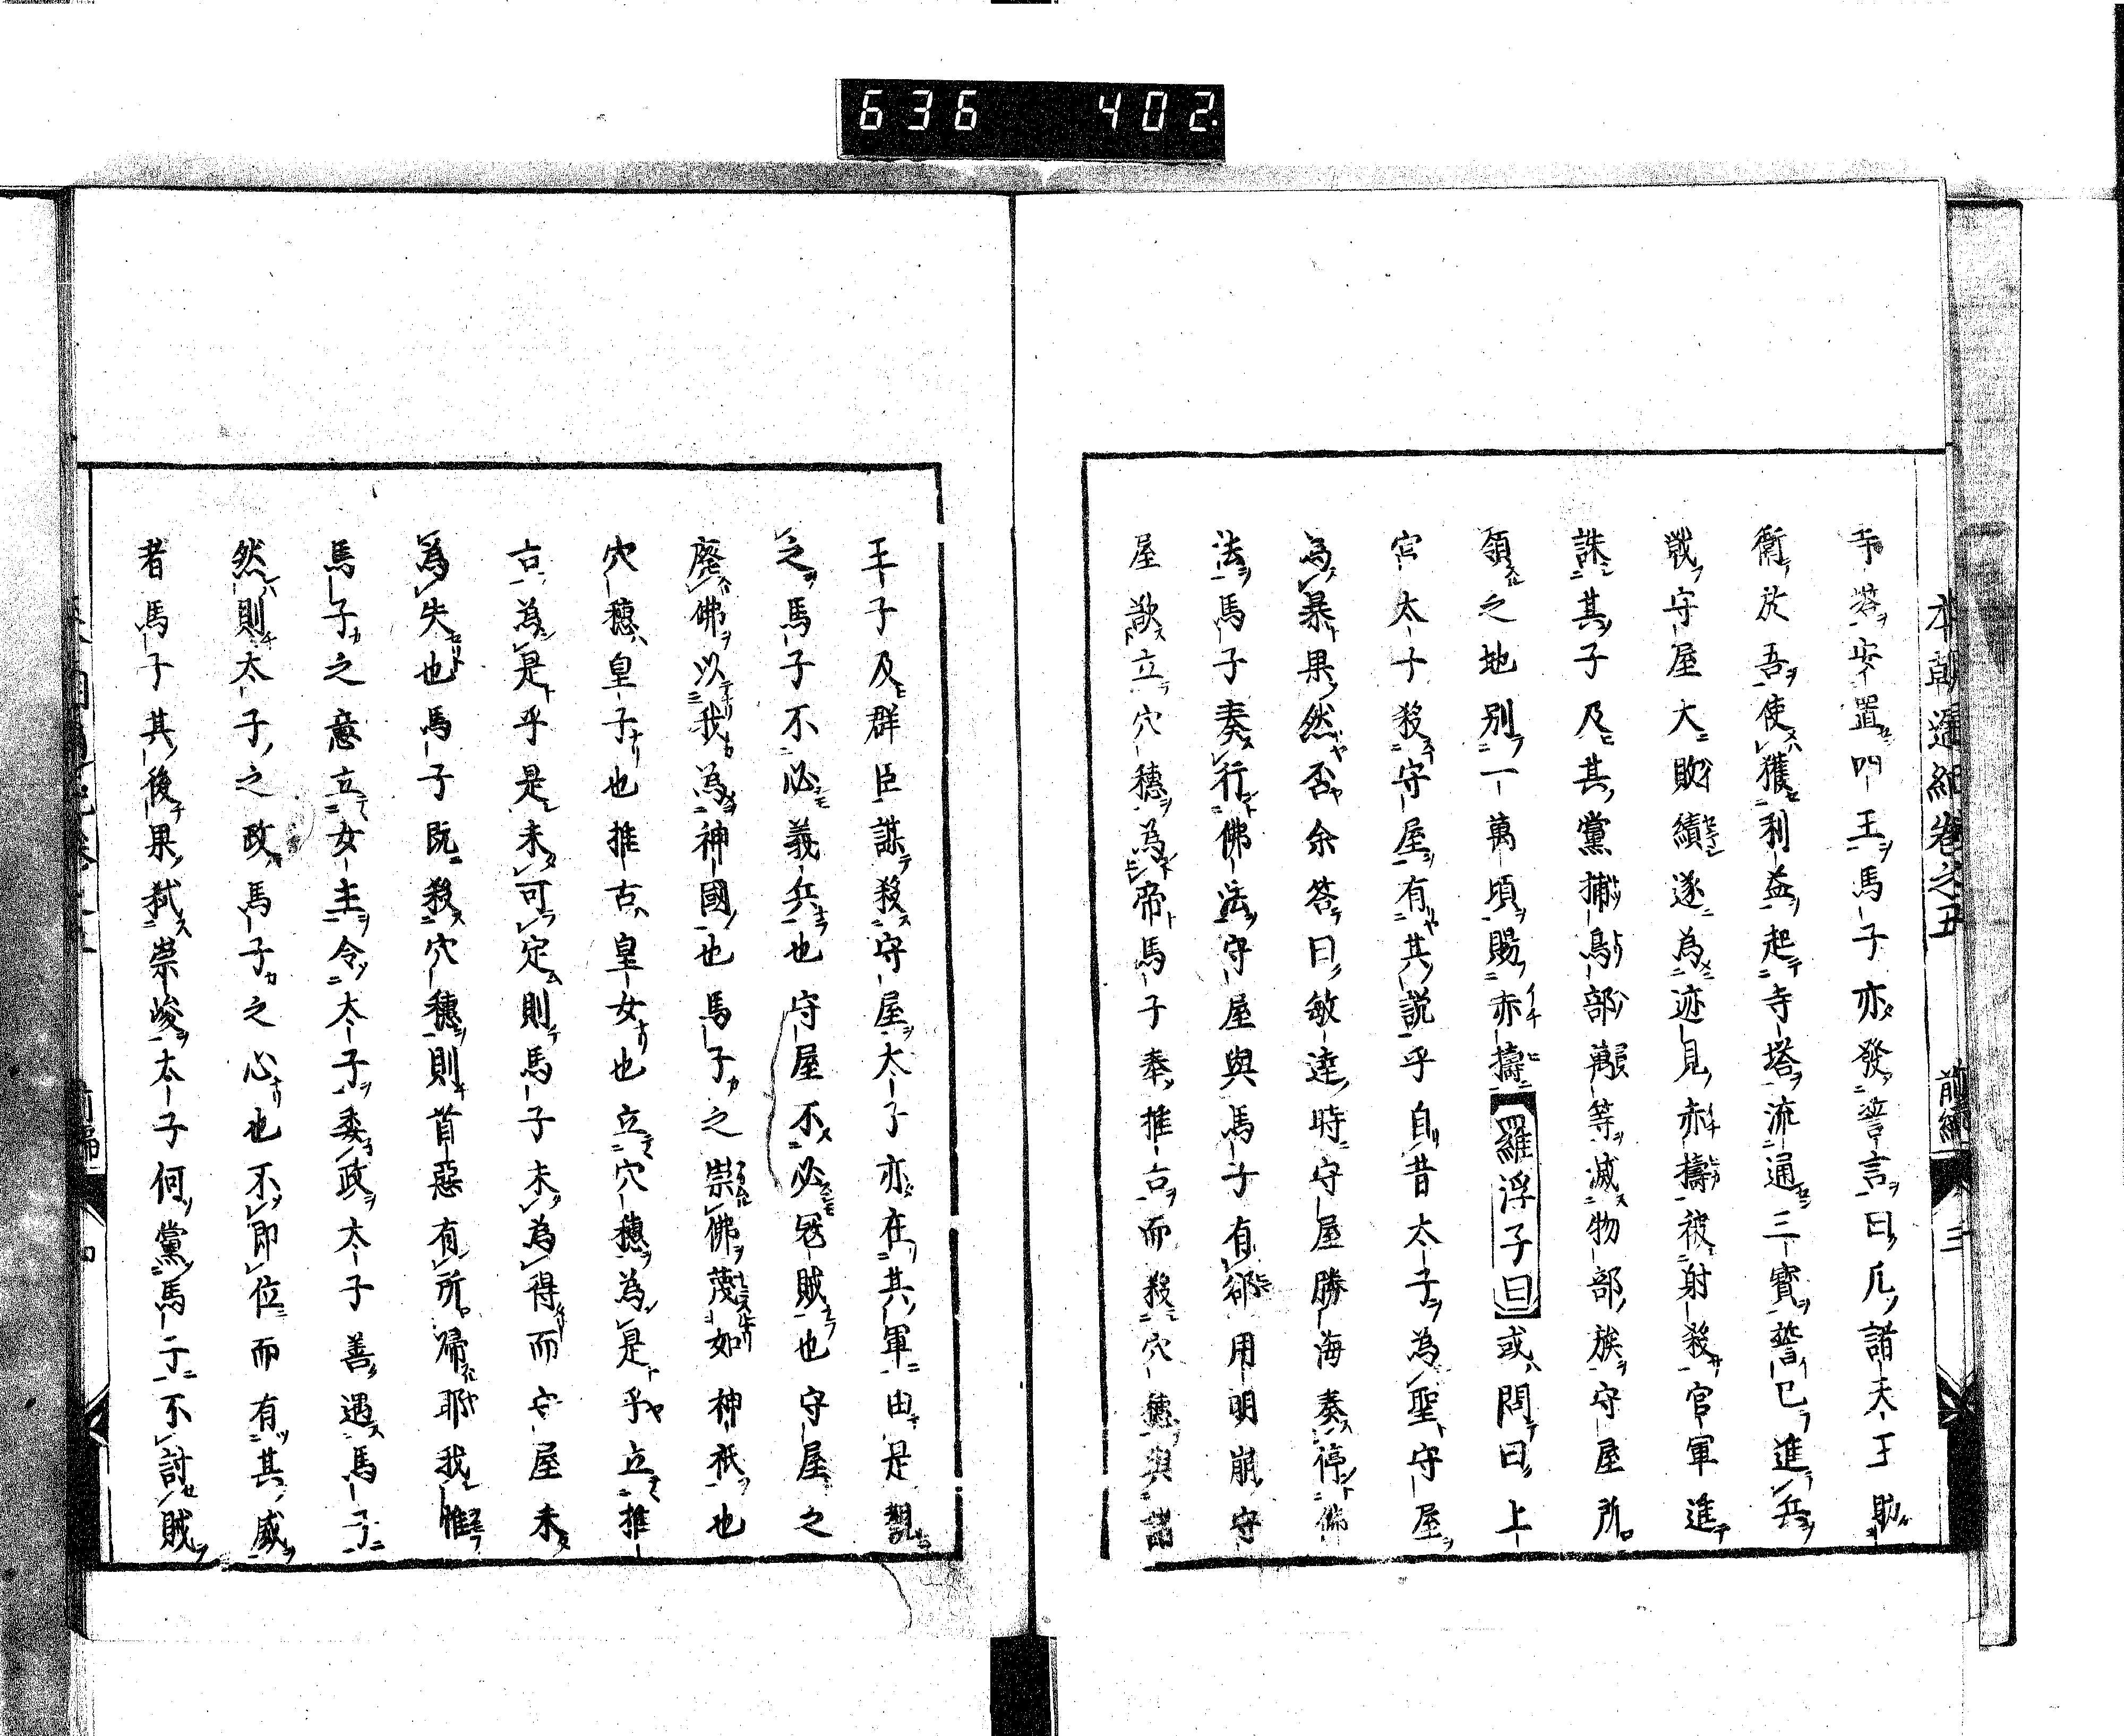 636 402
本朝通紀卷之五 前編 三
寺塔安置四王馬子亦發誓言曰凡諸天王助
衞於吾使獲利益起寺塔流通三寶誓已進兵
戰守屋大敗績遂為迹見赤檮被射殺官軍進
誅其子及其黨捕鳥部萬等滅物部族守屋所
領之地別一萬頃賜赤檮羅浮子曰或問曰上
宮太子殺守屋有其説乎自昔太子為聖守屋
為暴果然否余答曰敏達時守屋勝海奏停佛
法馬子奏行佛法守屋與馬子有郤用明崩守
屋欲立穴穗為帝馬子奉推古而殺穴穗與諸
王子及群臣謀殺守屋太子亦在其軍由是觀
之馬子不必義兵也守屋不必冦賊也守屋之
廢佛以我為神國也馬子之崇佛蔑如神祇也
穴穗皇子也推古皇女也立穴穗為是乎立推
古為是乎是未可定則馬子未為得而守屋未
為失也馬子既殺穴穗則首惡有所歸耶我惟
馬子之意立女主令太子委政太子善遇馬子
然則太子之政馬子之心也不即位而有其威
者馬子其後果弑崇峻太子何黨馬子不討賊